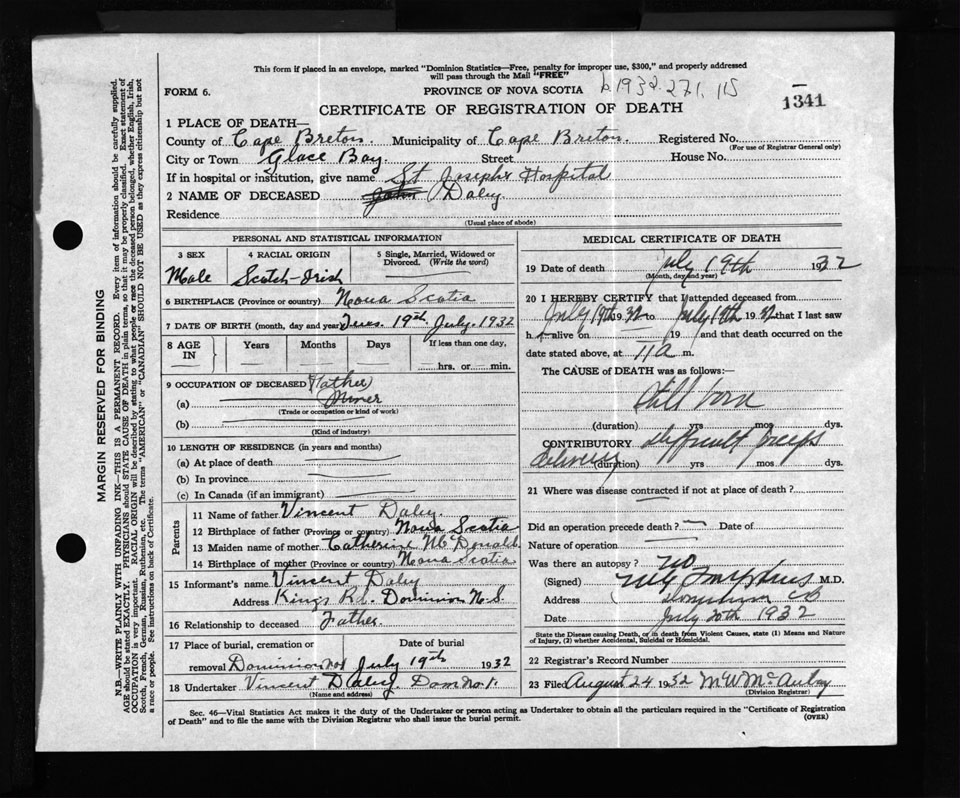 This form if placed in an envelope, marked "Dominion Statistics—Free, penalty for improper use, $300," and properly addressed
will pass through the Mail "FREE"
FORM 6.
PROVINCE OF NOVA SCOTIA
b 1932.271.115
1341
CERTIFICATE OF REGISTRATION OF DEATH
1 PLACE OF DEATH—
County of Cape Breton. Municipality of Cape Breton. Registered No.
(For use of Registrar General only)
City or Town Glace Bay Street House No.
If in hospital or institution, give name St Josephs Hospital
2 NAME OF DECEASED John Daley.
Residence
(Usual place of abode)
PERSONAL AND STATISTICAL INFORMATION
3 SEX 4 RACIAL ORIGIN 5 Single, Married, Widowed or
Divorced. (Write the word)
Male Scotch-Irish
6 BIRTHPLACE (Province or country) Nova Scotia
7 DATE OF BIRTH (month, day and year) Tues. 19th July. 1932
8 AGE IN Years Months Days If less than one day,
hrs. or min.
9 OCCUPATION OF DECEASED (Father)
(a) Miner
(Trade or occupation or kind of work)
(b)
(Kind of industry)
10 LENGTH OF RESIDENCE (in years and months)
(a) At place of death
(b) In province
(c) In Canada (if an immigrant)
Parents
11 Name of father Vincent Daley.
12 Birthplace of father (Province or country) Nova Scotia
13 Maiden name of mother Catherine McDonald
14 Birthplace of mother (Province or country) Nova Scotia
15 Informant's name Vincent Daley
Address Kings Rd. Dominion N.S.
16 Relationship to deceased Father.
17 Place of burial, cremation or Date of burial
removal Dominion No 1 July 19th 1932
18 Undertaker Vincent Daley. Dom No. 1.
(Name and address)
MEDICAL CERTIFICATE OF DEATH
19 Date of death July 19th 1932
(Month, day and year)
20 I HEREBY CERTIFY that I attended deceased from
July 19th 1932 to July 19th 1932 that I last saw
h alive on 19 and that death occurred on
date stated above, at 11 a m.
The CAUSE of DEATH was as follows:—
Still born
(duration) yrs mos dys.
CONTRIBUTORY difficult forceps
delivery (duration) yrs mos dys.
21 Where was disease contracted if not at place of death?
Did an operation precede death? Date of
Nature of operation
Was there an autopsy? no
(Signed) M.D.
Address Dominion CB
Date July 20th 1932
State the Disease causing Death, or in death from Violent Causes, state (1) Means and Nature
of Injury, (2) whether Accidental, Suicidal or Homicidal.
22 Registrar's Record Number
23 Filed August 24 1932 M W McAulay
(Division Registrar)
Sec. 46—Vital Statistics Act makes it the duty of the Undertaker or person acting as Undertaker to obtain all the particulars required in the "Certificate of Registration
of Death" and to file the same with the Division Registrar who shall issue the burial permit.
(OVER)
MARGIN RESERVED FOR BINDING
N.B.—WRITE PLAINLY WITH UNFADING INK—THIS IS A PERMANENT RECORD. Every item of information should be carefully supplied.
AGE should be stated EXACTLY. PHYSICIANS should STATE CAUSE OF DEATH in plain terms, so that it may be properly classified. Exact statement of
OCCUPATION is very important. RACIAL ORIGIN will be described by stating to what people or race the deceased person belonged, whether English, Irish,
Scotch, French, German, Russian, Ruthenian, etc. The terms "AMERICAN" or "CANADIAN" SHOULD NOT BE USED as they express citizenship but not
a race or people. See instructions on back of Certificate.